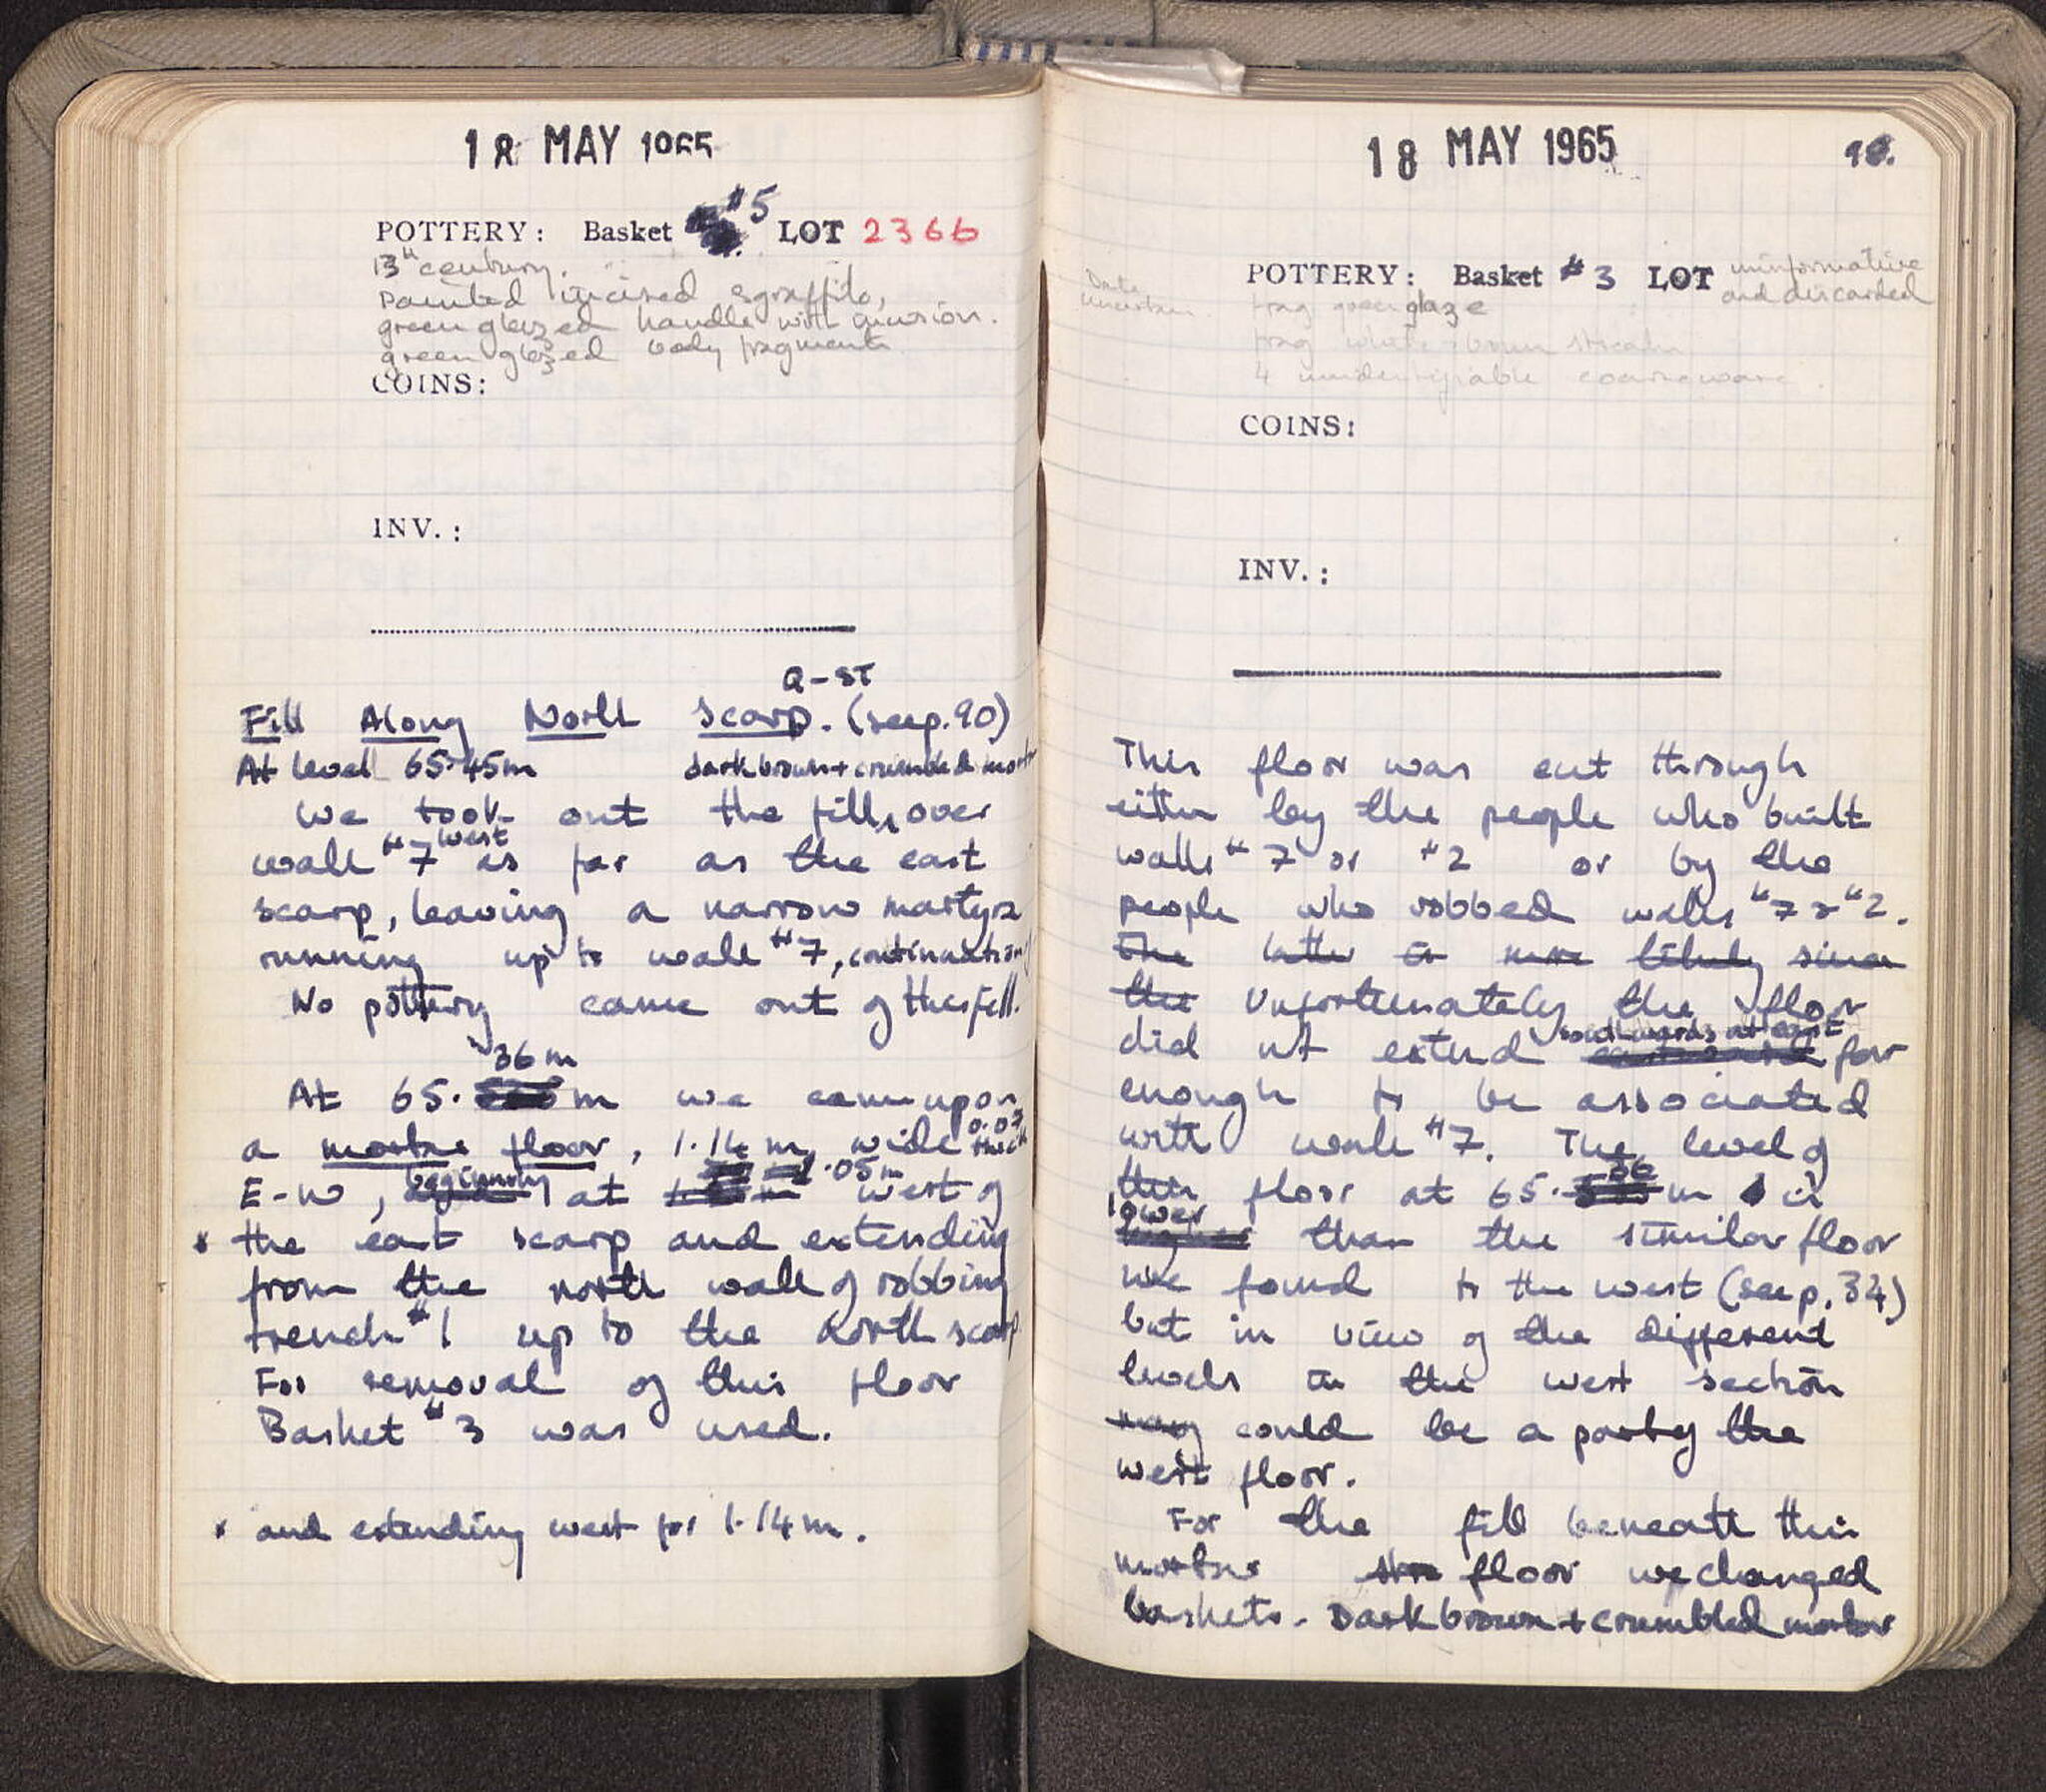 18 MAY 1965
POTTERY: Basket #5 LOT 2366
13th century.
Painted incised sgraffito,
green glazed handle with incision.
green glazed body fragments
COINS:
INV.:
Q-ST
Fill Along North Scarp. (see p.90)
At level 65.45m dark brown + crumbled mortar
We took out the fill, over
wall #7 west as far as the east
scarp, leaving a narrow martyra
running up to wall #7, continuation
No pottery came out of this fill.
36 m
At 65. m we came upon
a mortar floor, 1.14 m wide 0.07 thick
E-W, beginning at 1.05m west of
x the east scarp and extending
from the north wall of robbing
trench #1 up to the north scarp
For removal of this floor
Basket #3 was used.
x and extending west for 1.14m.
18 MAY 1965 90.
POTTERY: Basket #3 LOT uninformative
and discarded
Date
uncertain.
frag green glaze
frag white-brown streaks
4 unidentifiable coarseware.
COINS:
INV.:
This floor was cut through
either by the people who built
walls #7 or #2 or by the
people who robbed walls #7 or #2.
The latter is more likely since
the Unfortunately the floor
did not extend southwards at east far
enough to be associated
with wall #7. The level of
this floor at 65.36 m is
lower than the similar floor
we found to the west (see p. 34)
but in view of the different
levels in the west section
may could be a part of the
west floor.
For the fill beneath this
mortar floor we changed
baskets. Dark brown + crumbled mortar